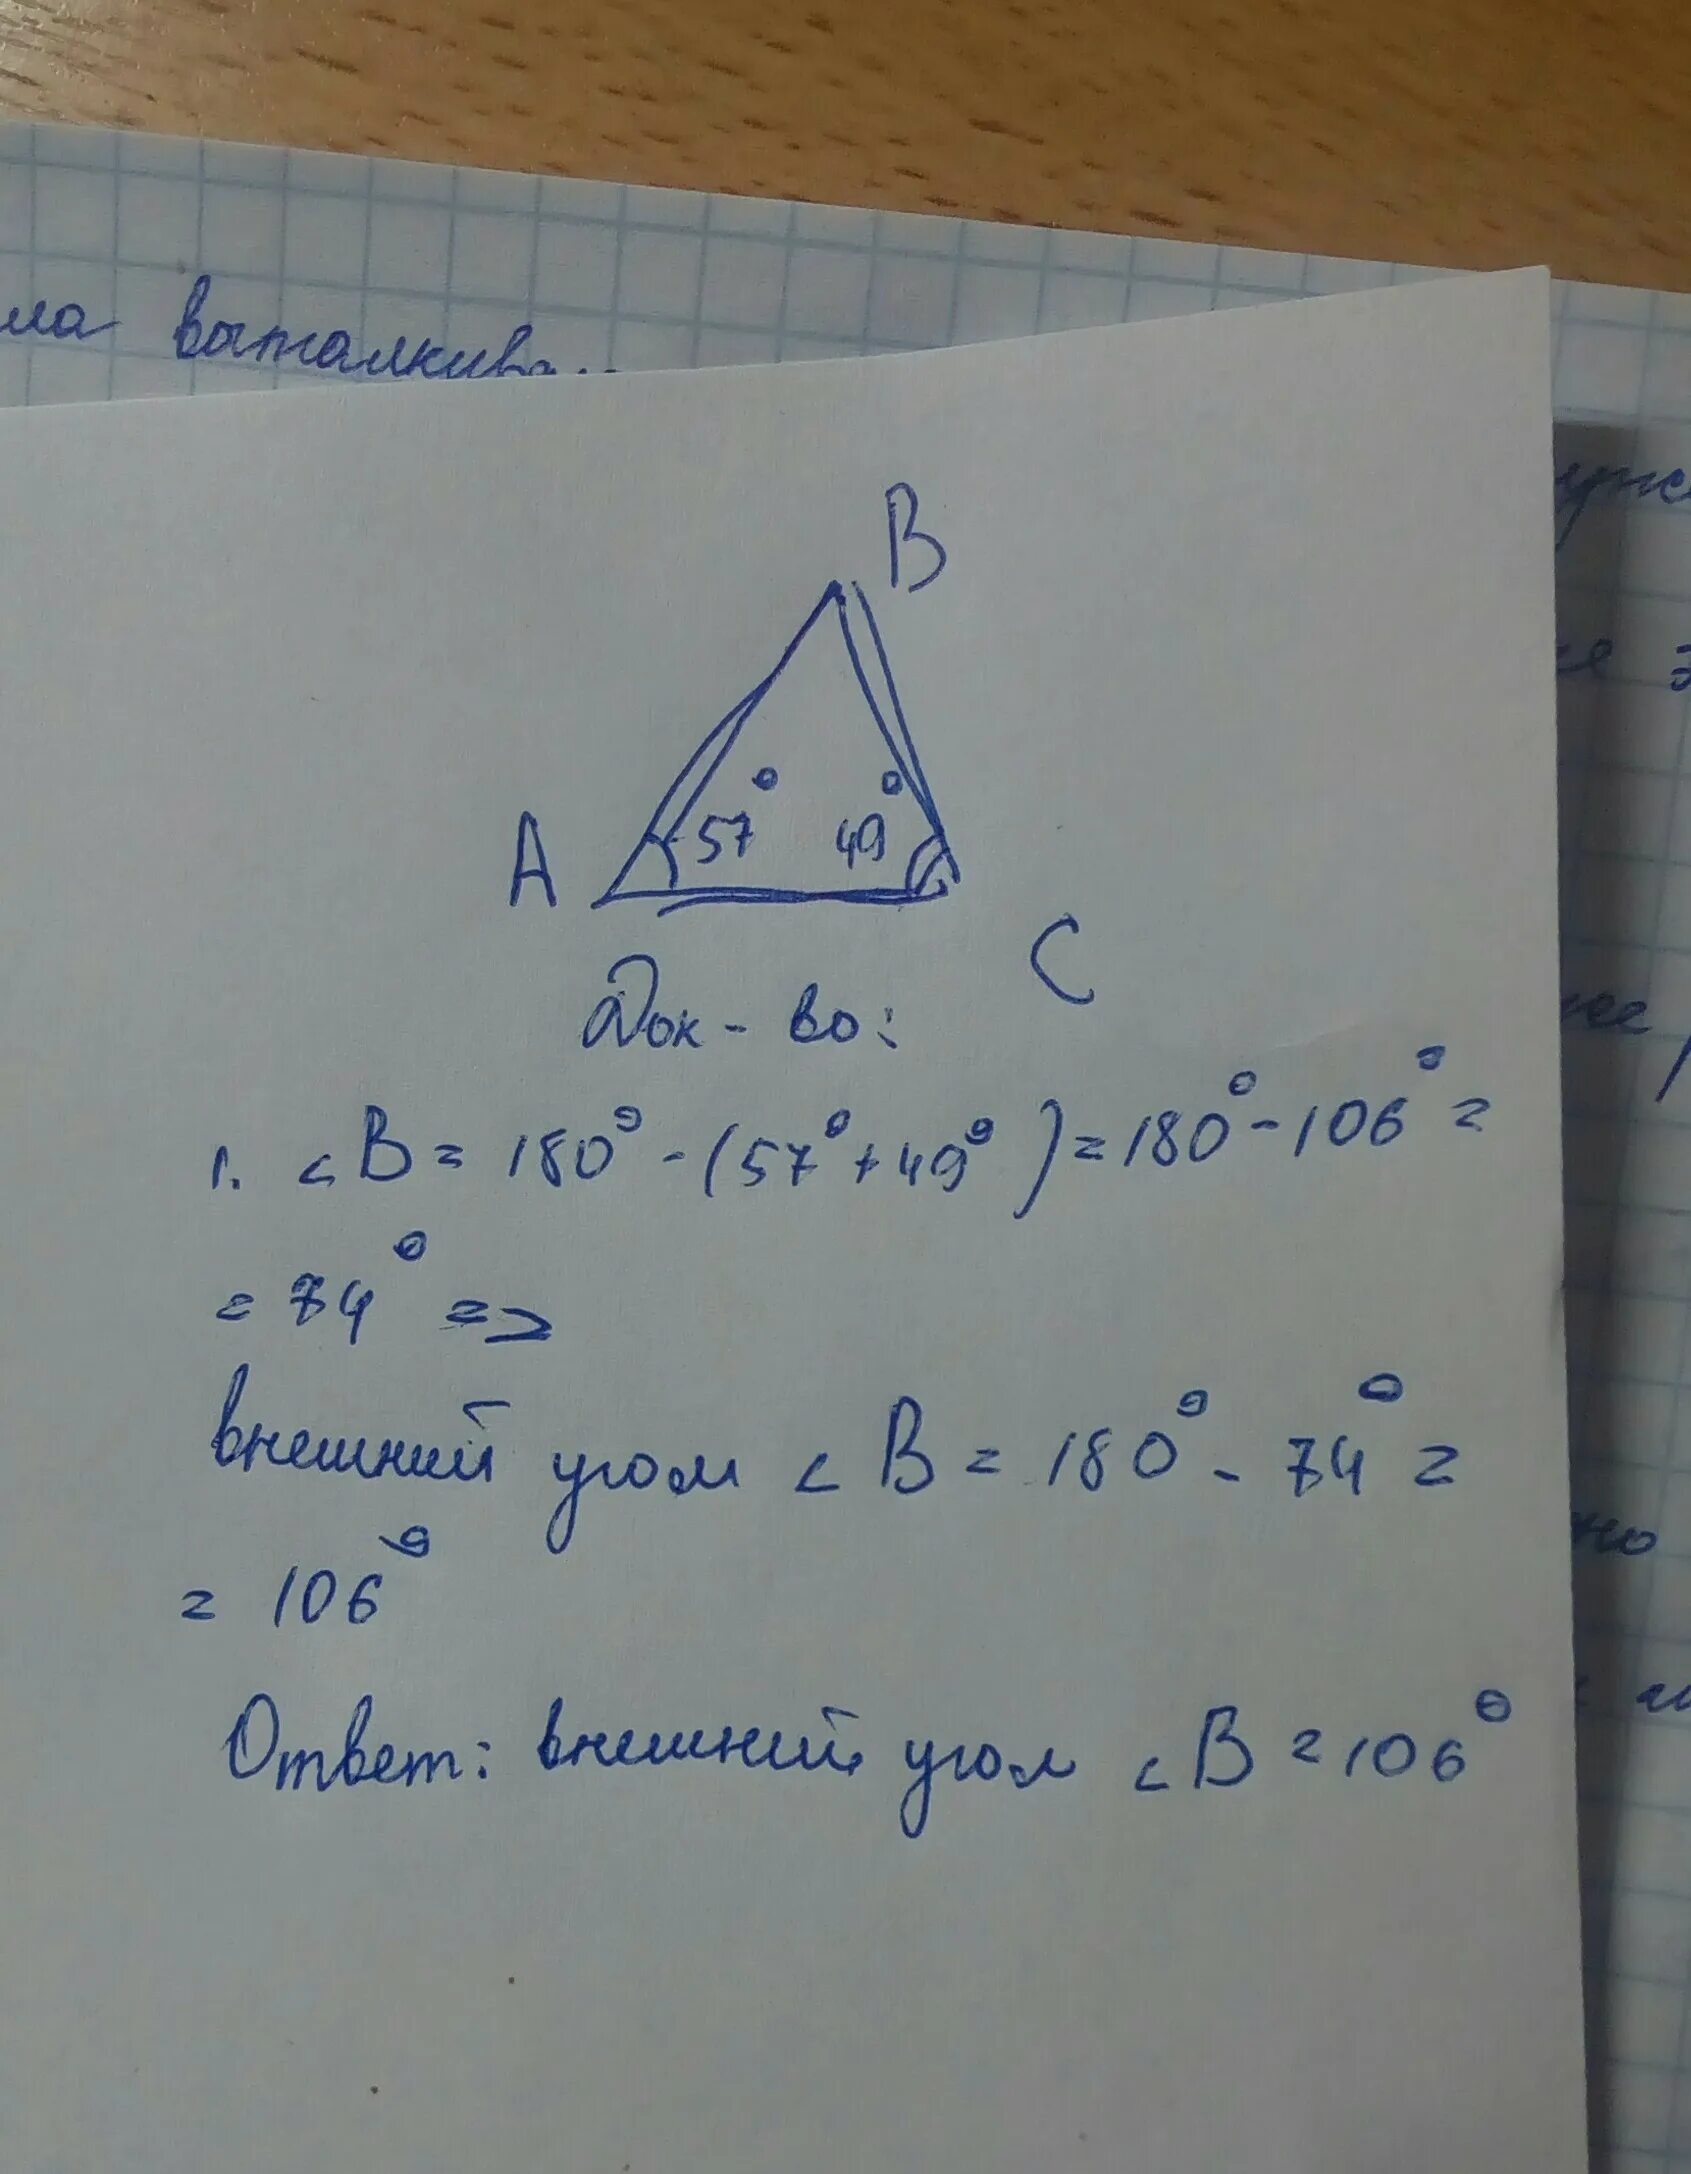 ла выталкива
B
57° 49°
A
C
Док-во:
1. ∠B = 180° - (57° + 49°) = 180° - 106° =
= 74° =>
внешний угол ∠B = 180° - 74° =
= 106°
Ответ: внешний угол ∠B = 106°
но